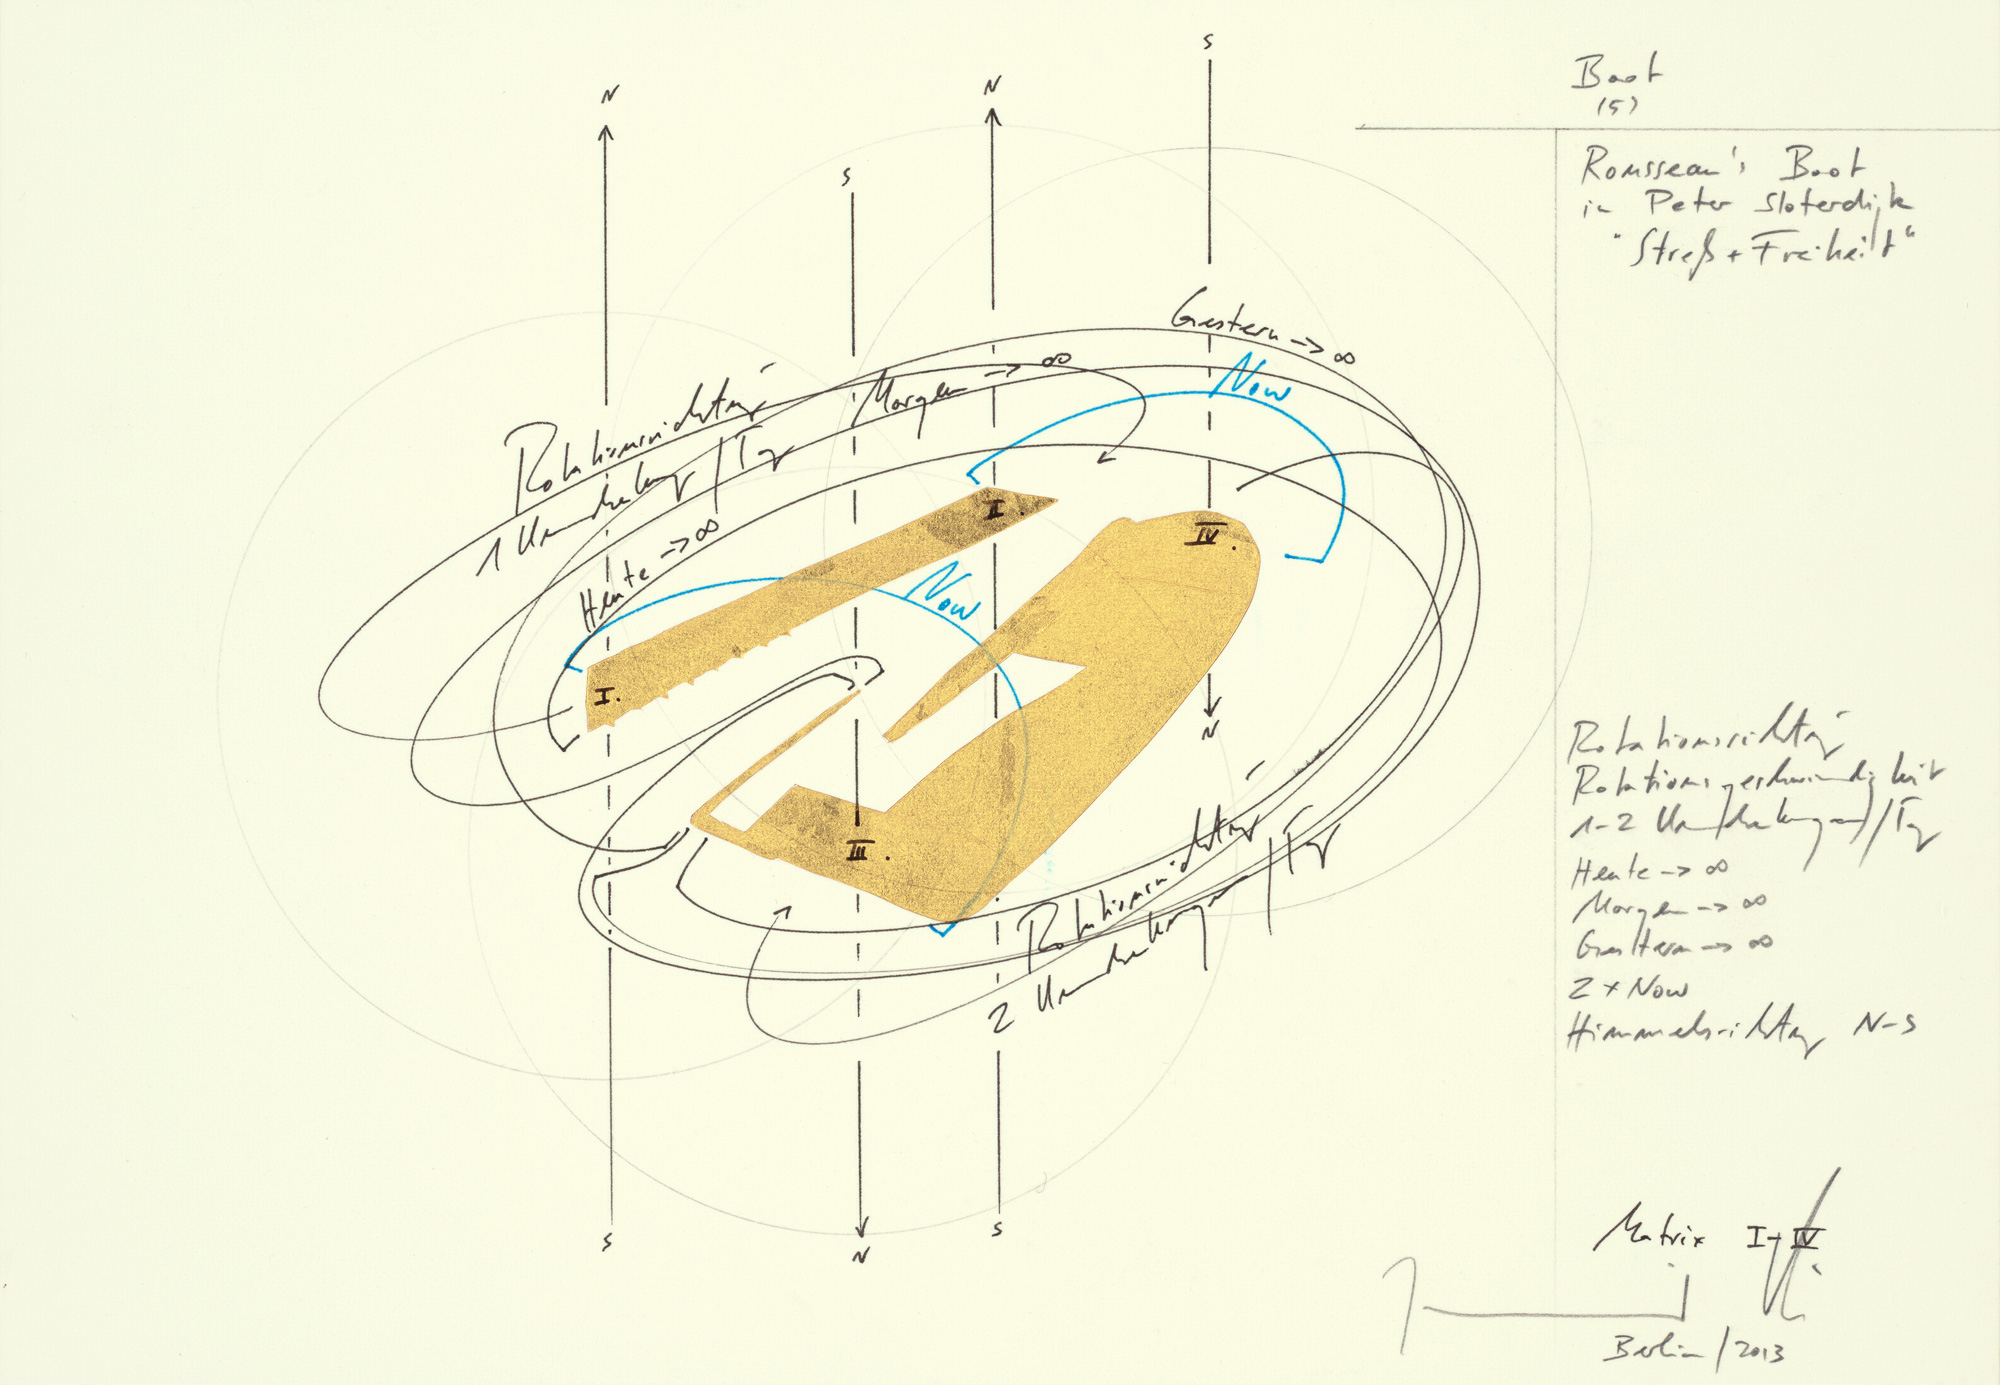 Boot
(5)
Rousseau's Boot
in Peter Sloterdijk
"Streß + Freiheit"
S
N
N
S
Gestern -> ∞
Now
Morgen -> ∞
Rotationsrichtung
1 Umdrehung/Tag
Heute -> ∞
Now
I.
II.
III.
IV.
N
Rotationsrichtung
2 Umdrehungen/Tag
S
N
S
Rotationsrichtung
Rotationsgeschwindigkeit
1-2 Umdrehung(en)/Tag
Heute -> ∞
Morgen -> ∞
Gestern -> ∞
2 x Now
Himmelsrichtung N-S
Matrix I-IV
Berlin/2013